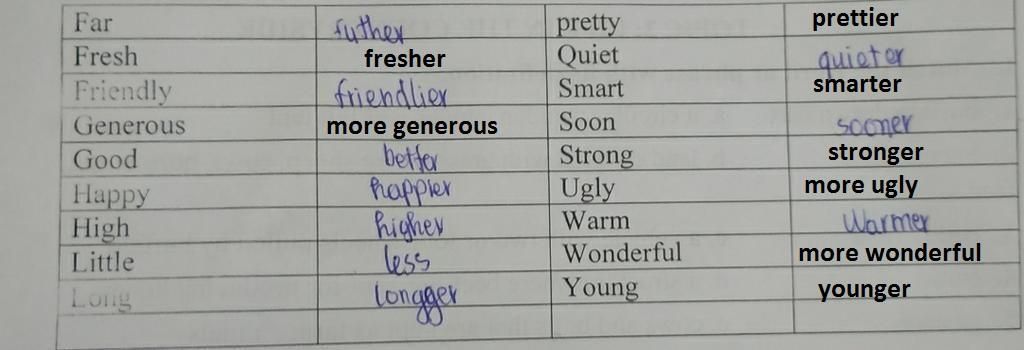 Far futher pretty prettier
Fresh fresher Quiet quieter
Friendly friendlier Smart smarter
Generous more generous Soon sooner
Good better Strong stronger
Happy happier Ugly more ugly
High higher Warm Warmer
Little less Wonderful more wonderful
Long longger Young younger